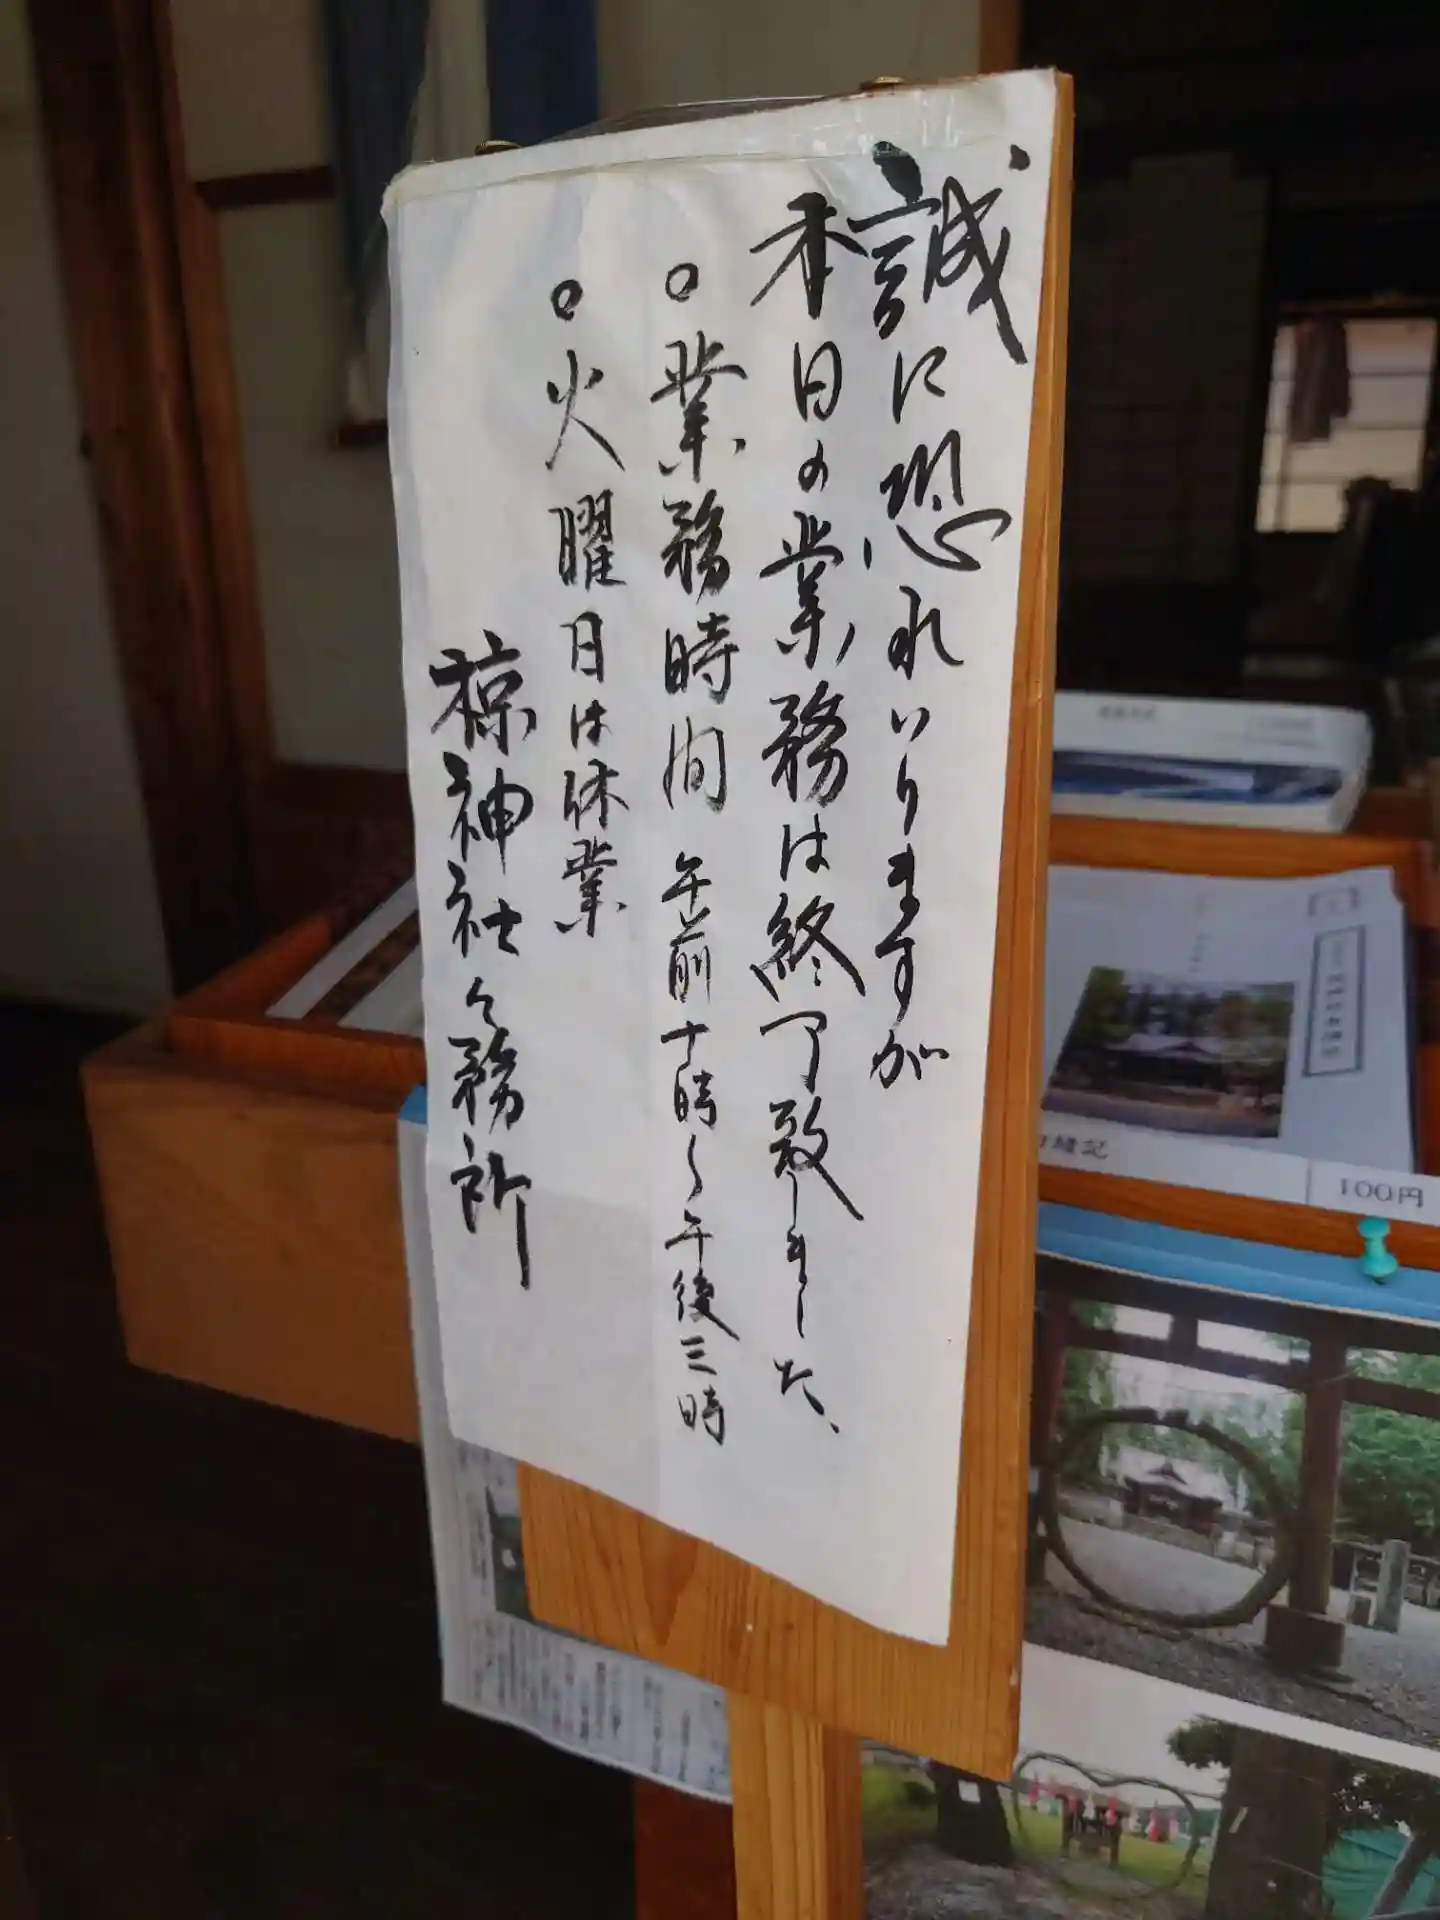 誠に恐れいりますが
本日の業務は終了致しました、
○業務時間 午前十時〜午後三時
○火曜日は休業
椋神社々務所
縁記
100円